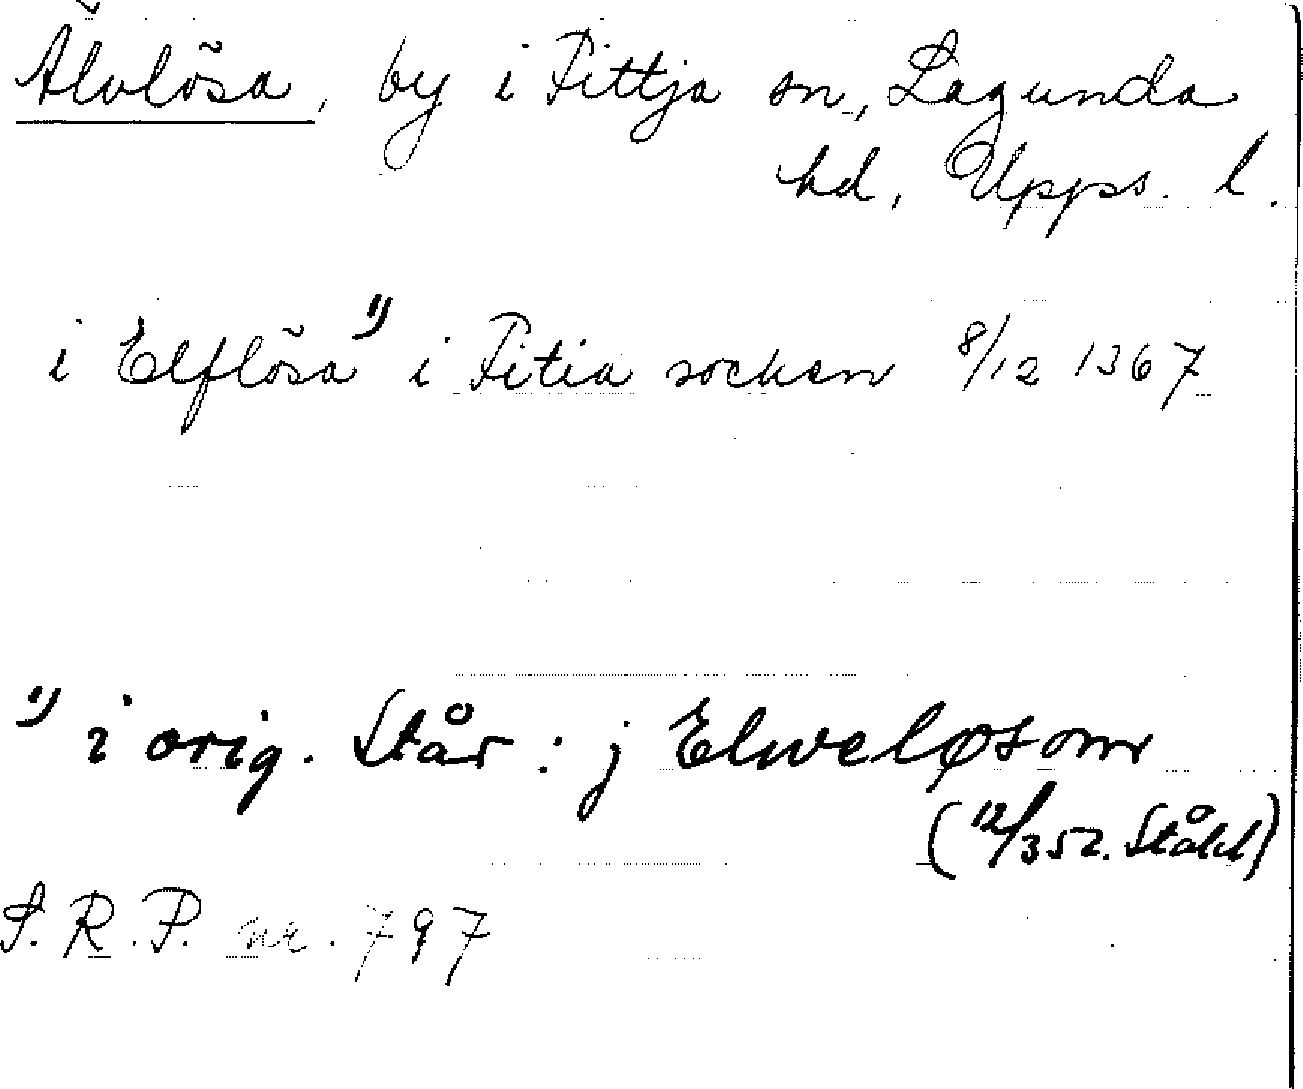 Älvlösa, by i Fittja sn, Lagunda
hd, Upps. l.
i Elflösa 1) i Fitia socken 8/12 1367
1) i orig. Står: j Elweløsom
(12/3 52. Ståhl)
S.R.P. nr. 797